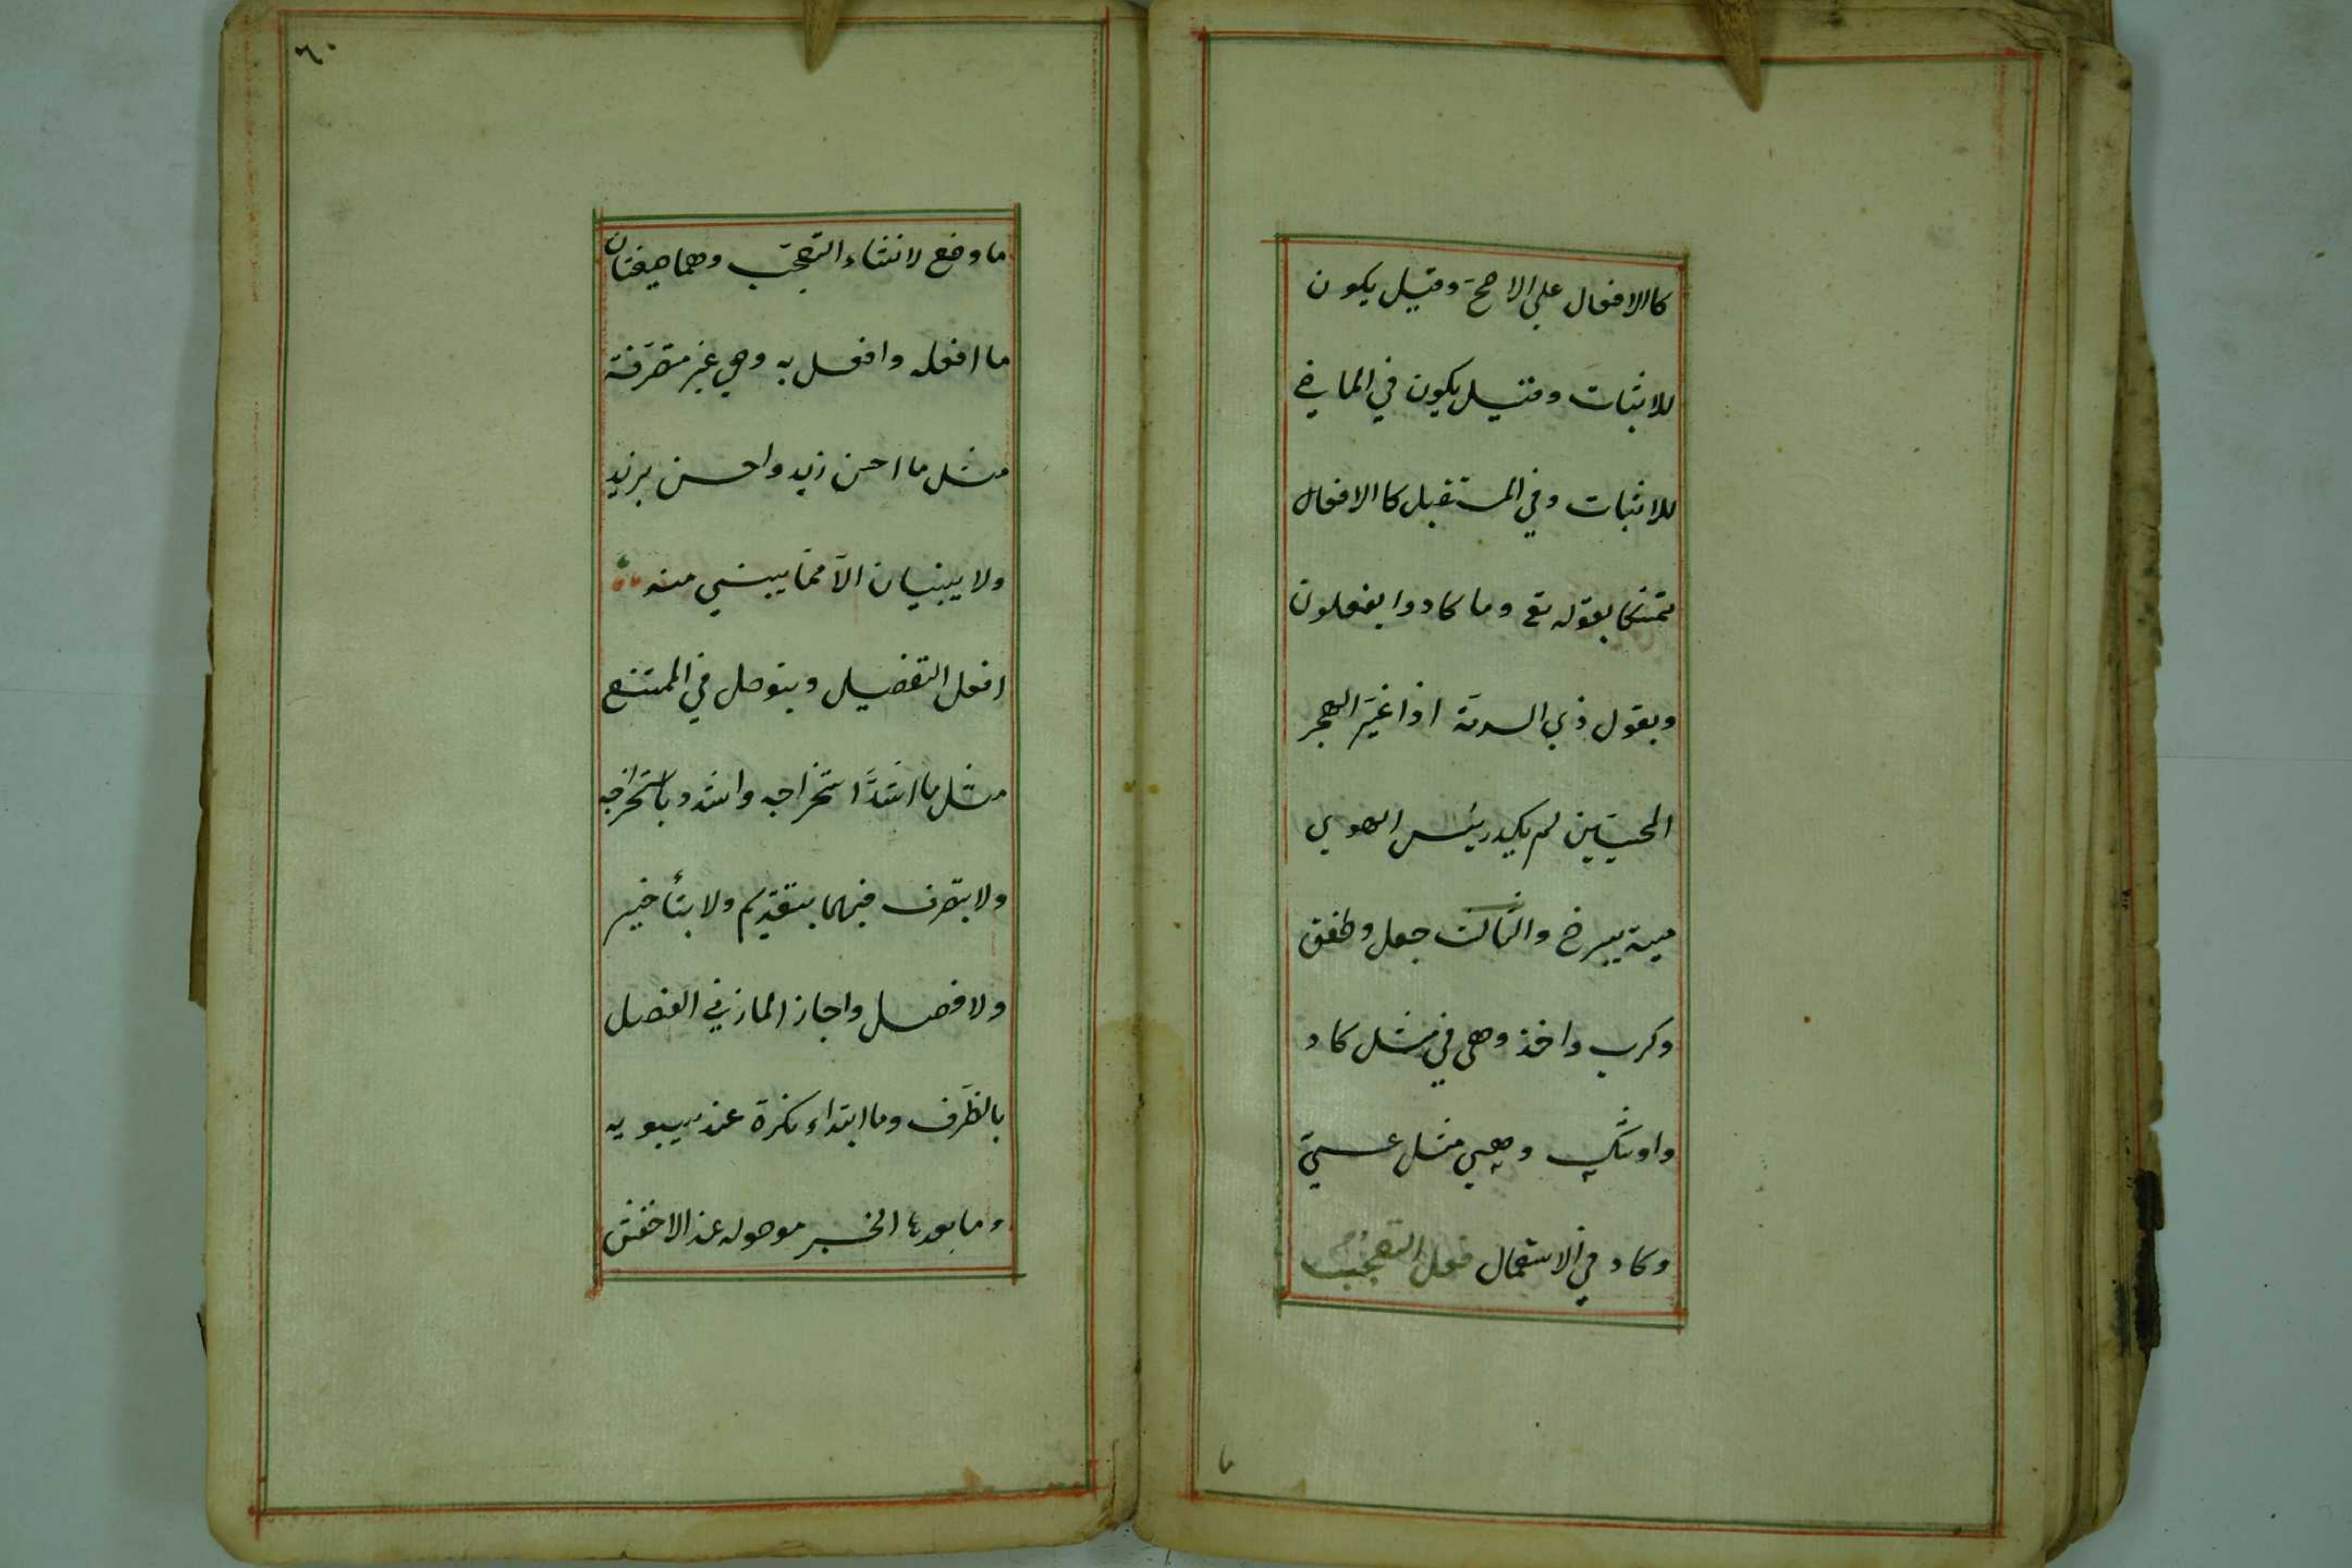 كاالافعال علي الاصحّ وقيل يكون
للاثبات وقيل يكون في الماضي
للاثبات وفي المستقبل كاالافعال
تمسّكا بقوله تع وما كادوا يفعلون
وبقول ذي الرمة اذا غيّر الهجر
المحبيّين لم يكد رسيس الهوي
مية يبرح والثالث جعل وطفق
وكرب واخذ وهي في مثل كاد
واوشك وهي مثل عسي
وكاد في الاستعمال فعل التعجّب
ما
٦٠
ما وضع لانشاء التعجّب وهما صيغتان
ما افعله وافعل به وهي غير متصرّفة
مثل ما احسن زيد واحسن بزيد
ولا يبنيان الّا ممّا يبني منه
افعل التفضيل ويتوصل في الممتنع
مثل ما اشدّ استخراجه واشدد باستخراجه
ولا يتصرف فيهما بتقديم ولا بتأخير
ولا فصل واجاز المازني الفصل
بالظرف وما ابتداء نكرة عند سيبويه
وما بعدها الخبر موصوله عند الاخفش